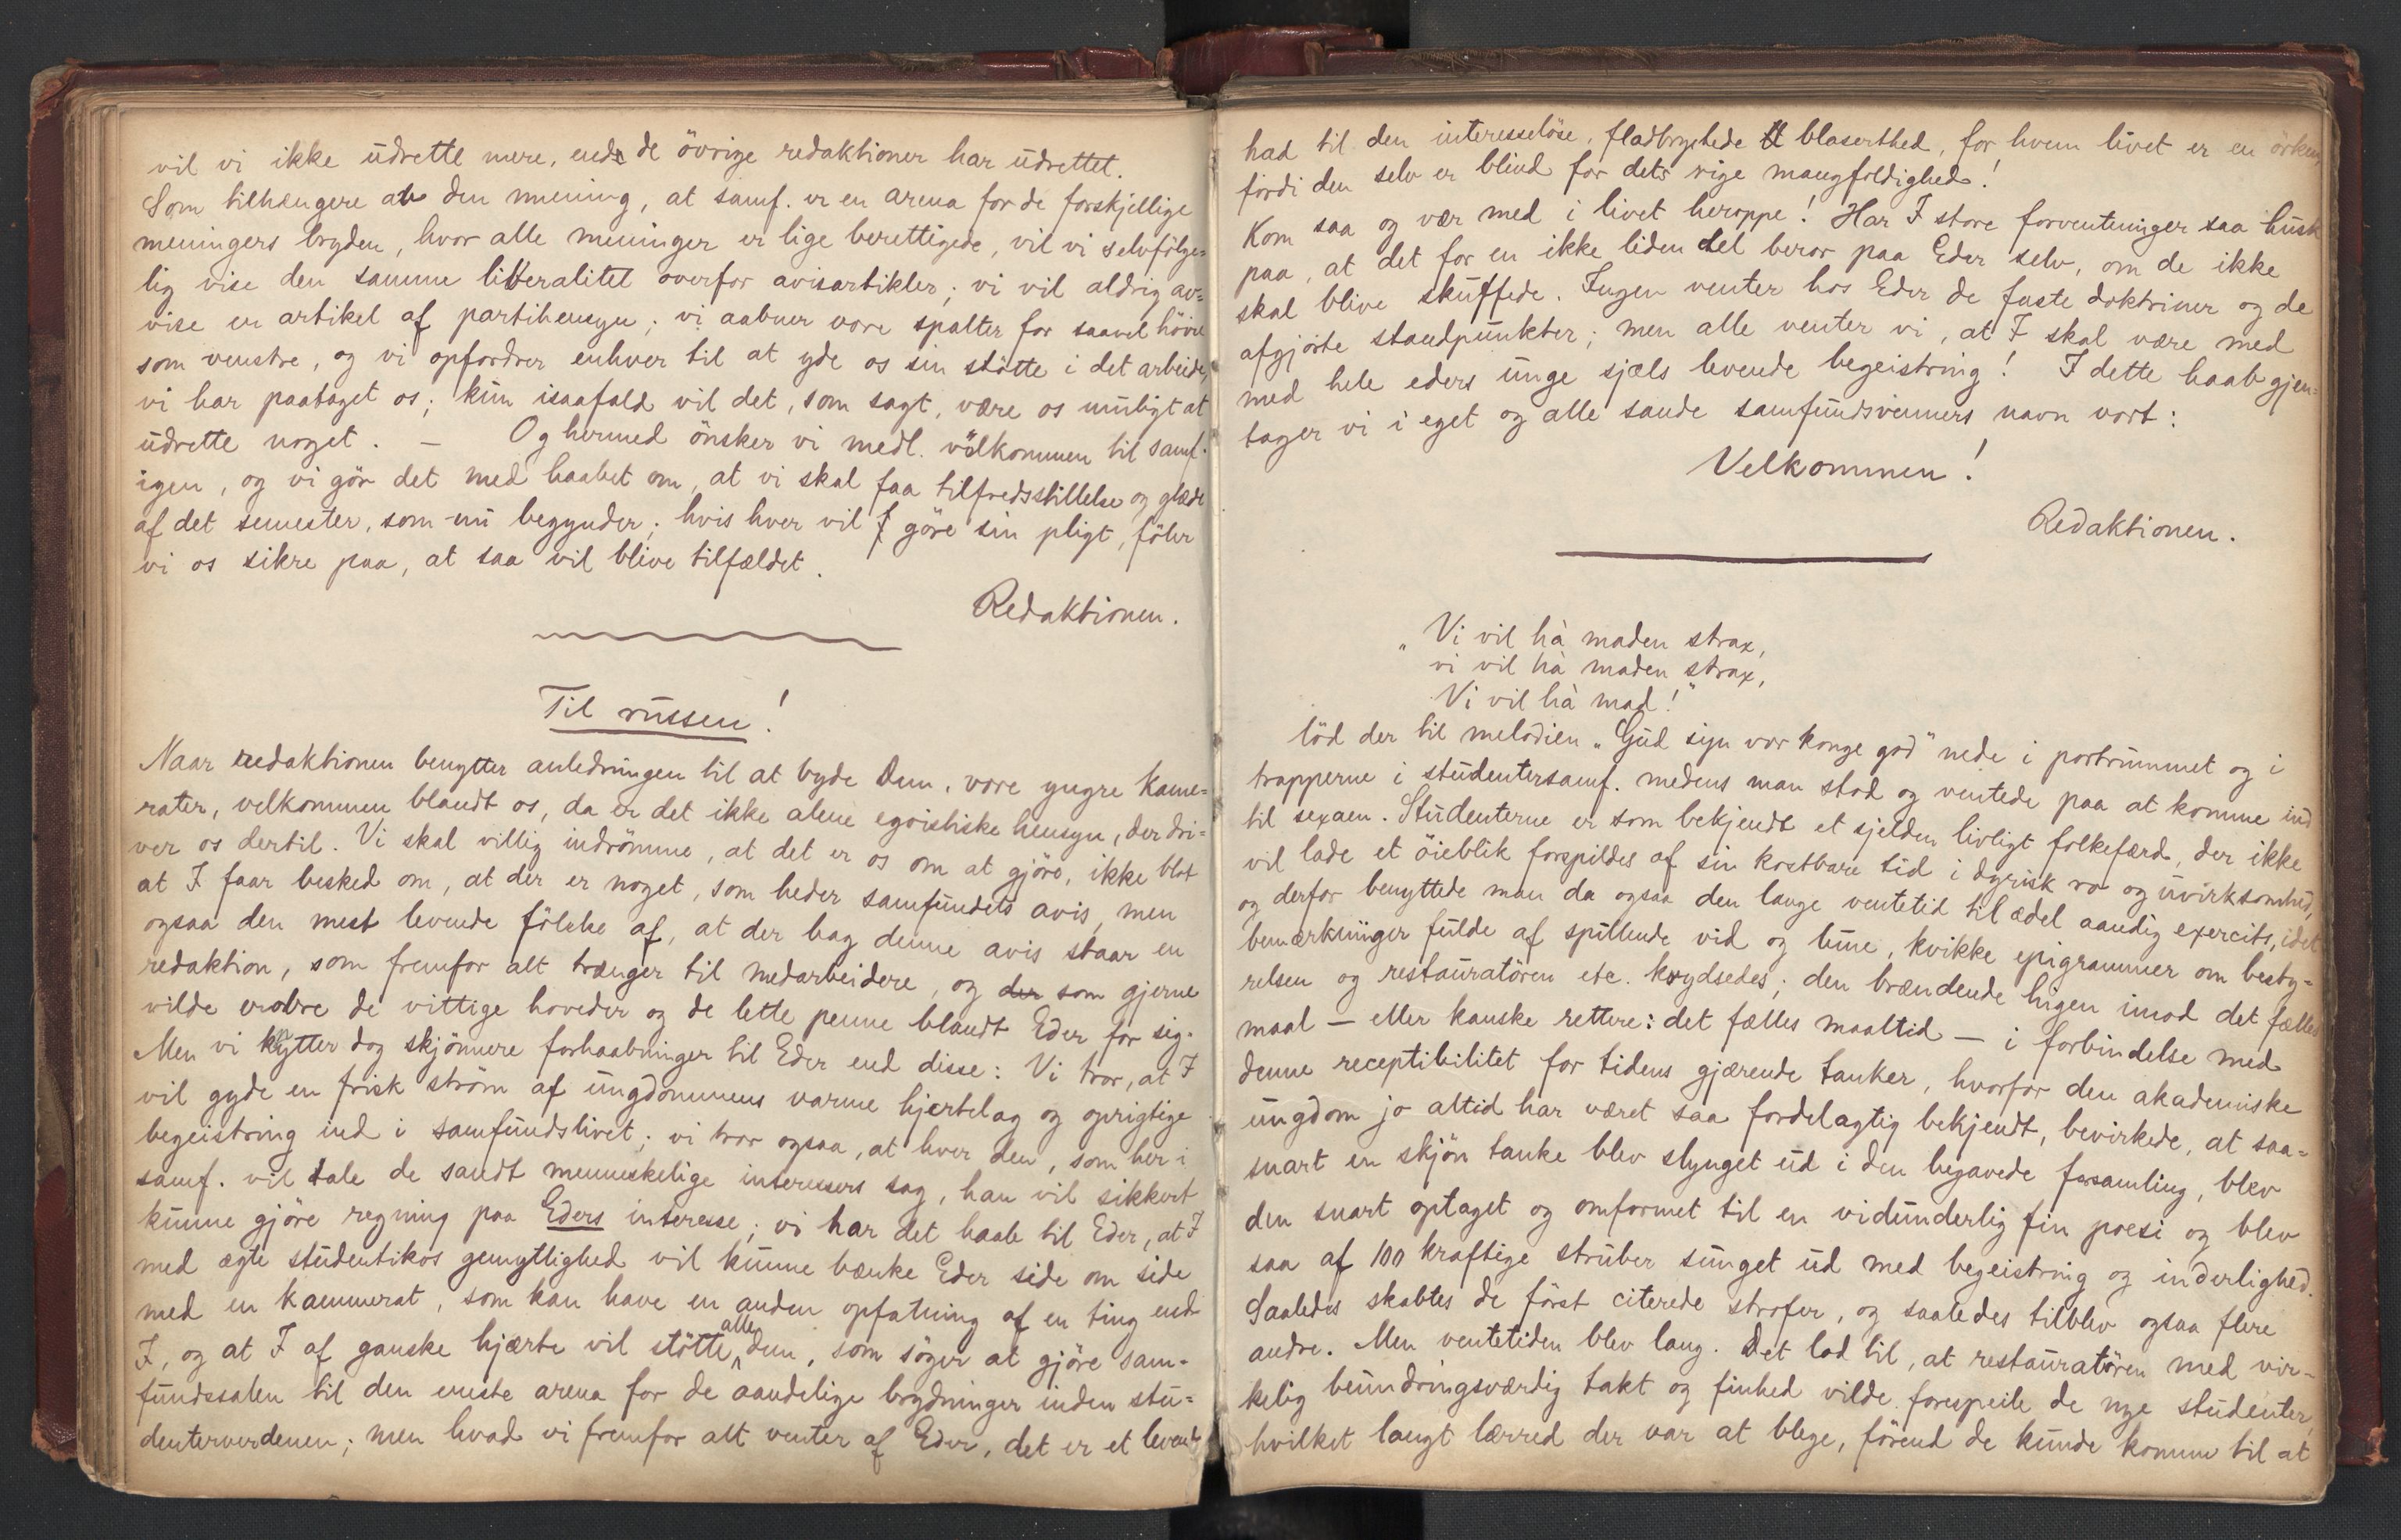 vil vi ikke udrette mere, end de övrige redaktioner har udrettet.
Som tilhængere av den mening, at samf. er en arena for de forskjellige
meningers bryden, hvor alle meninger er lige berettigede, vil vi selvfölge=
lig vise den samme liberalitet overfor avisartikler; vi vil aldrig av=
vise en artikel af partihensyn; vi aabner vore spalter for saavel höire
som venstre, og vi opfordrer enhver til at yde os sin stötte i det arbeide,
vi har paataget os; kun isaafald vil det, som sagt, være os muligt at
udrette noget. — Og hermed önsker vi medl. velkommen til samf.
igen, og vi gör det med haabet om, at vi skal faa tilfredsstillelse og glæde
af det semester, som nu begynder; hvis hver vil göre sin pligt, föler
vi os sikre paa, at saa vil blive tilfældet.
Redaktionen.
Til russen!
Naar redaktionen benytter anledningen til at byde Dem, vore yngre kame=
rater, velkommen blandt os, da er det ikke alene egoistiske hensyn, der dri=
ver os dertil. Vi skal villig indrömme, at det er os om at gjöre, ikke blot
at I faar besked om, at der er noget, som heder samfundets avis, men
ogsaa den mest levende fölelse af, at der bag denne avis staar en
redaktion, som fremfor alt trænger til medarbeidere, og der som gjerne
vilde erobre de vittige hoveder og de lette penne blandt Eder for sig.
Men vi knytter dog skjönnere forhaabninger til Eder end disse: Vi tror, at I
vil gyde en frisk ström af ungdommens varme hjertelag og oprigtige
begeistring ind i samfundslivet; vi tror ogsaa, at hver den, som her i
samf. vil tale de sandt menneskelige interessers sag, han vil sikkert
kunne gjöre regning paa Eders interesse; vi har det haab til Eder, at I
med ægte studentikos gemytlighed vil kunne bænke Eder side om side
med en kammerat, som kan have en anden opfatning af en ting end
I, og at I af ganske hjærte vil stötte alle dem, som söger at gjöre sam-
fundssalen til den eneste arena for de aandelige brydninger inden stu=
denterverdenen; men hvad vi fremfor alt venter af Eder, det er et levende
had til den interesselöse, fladbrystede blaserthed, for hvem livet er en örken,
fordi den selv er blind for dets rige mangfoldighed!
Kom saa og vær med i livet heroppe! Har I store forventninger saa husk
paa, at det for en ikke liden del beror paa Eder selv, om de ikke
skal blive skuffede. Ingen venter hos Eder de faste doktriner og de
afgjorte standpunkter; men alle venter vi, at I skal være med
med hele eders unge sjæls levende begeistring! I dette haab gjen=
tager vi i eget og alle sande samfundsvenners navn vort:
Velkommen!
Redaktionen.
„Vi vil ha maden strax,
vi vil ha maden strax,
Vi vil ha mad!"
löd der til melodien „Gud sign vor konge god" nede i portrummet og i
trapperne i studentersamf. medens man stod og ventede paa at komme ind
til sexaen. Studenterne er som bekjendt et sjelden livligt folkefærd, der ikke
vil lade et öieblik forspildes af sin kostbare tid i dyrisk ro og uvirksomhed,
og derfor benyttede man da ogsaa den lange ventetid til ædel aandig exercits, idet
bemærkninger fulde af spillende vid og lune, kvikke epigrammer om besty=
relsen og restauratören etc. krydsedes; den brændende higen imod det fælles
maal — eller kanske rettere: det fælles maaltid — i forbindelse med
denne receptibilitet for tidens gjærende tanker, hvorfor den akademiske
ungdom jo altid har været saa fordelagtig bekjendt, bevirkede, at saa=
snart en skjön tanke blev slynget ud i den begavede forsamling, blev
den snart optaget og omformet til en vidunderlig fin poesi og blev
saa af 100 kraftige struber sunget ud med begeistring og inderlighed.
Saaledes skabtes de först citerede strofer, og saaledes tilblev ogsaa flere
andre. Men ventetiden blev lang. Det lod til, at restauratören med vir-
kelig beundringsværdig takt og finhed vilde forespeile de nye studenter,
hvilket langt lærred der var at blege, förend de kunde komme til at